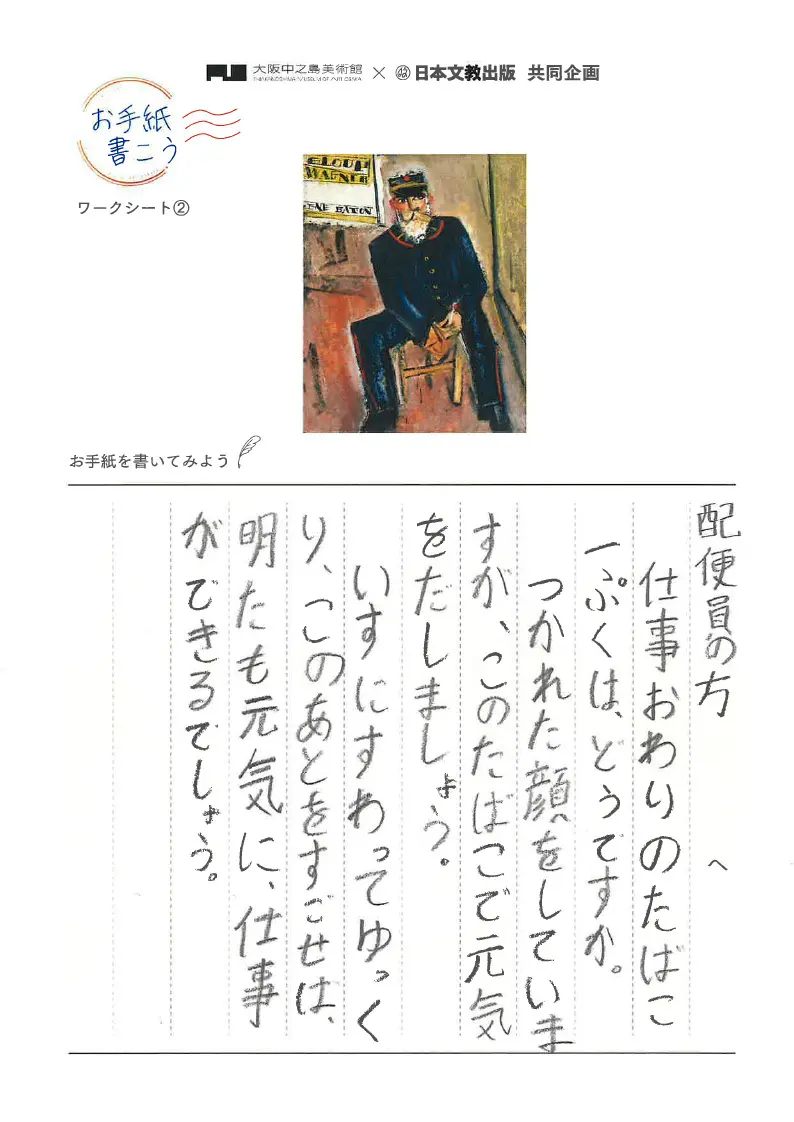 大阪中之島美術館 × 日本文教出版 共同企画
NAKANOSHIMA MUSEUM OF ART, OSAKA
お手紙
書こう
ワークシート②
WAGNER
お手紙を書いてみよう
配便員の方 へ
仕事おわりのたばこ
一ぷくは、どうですか。
つかれた顔をしていま
すが、このたばこで元気
をだしましょう。
いすにすわってゆっく
り、このあとをすごせは、
明たも元気に、仕事
ができるでしょう。